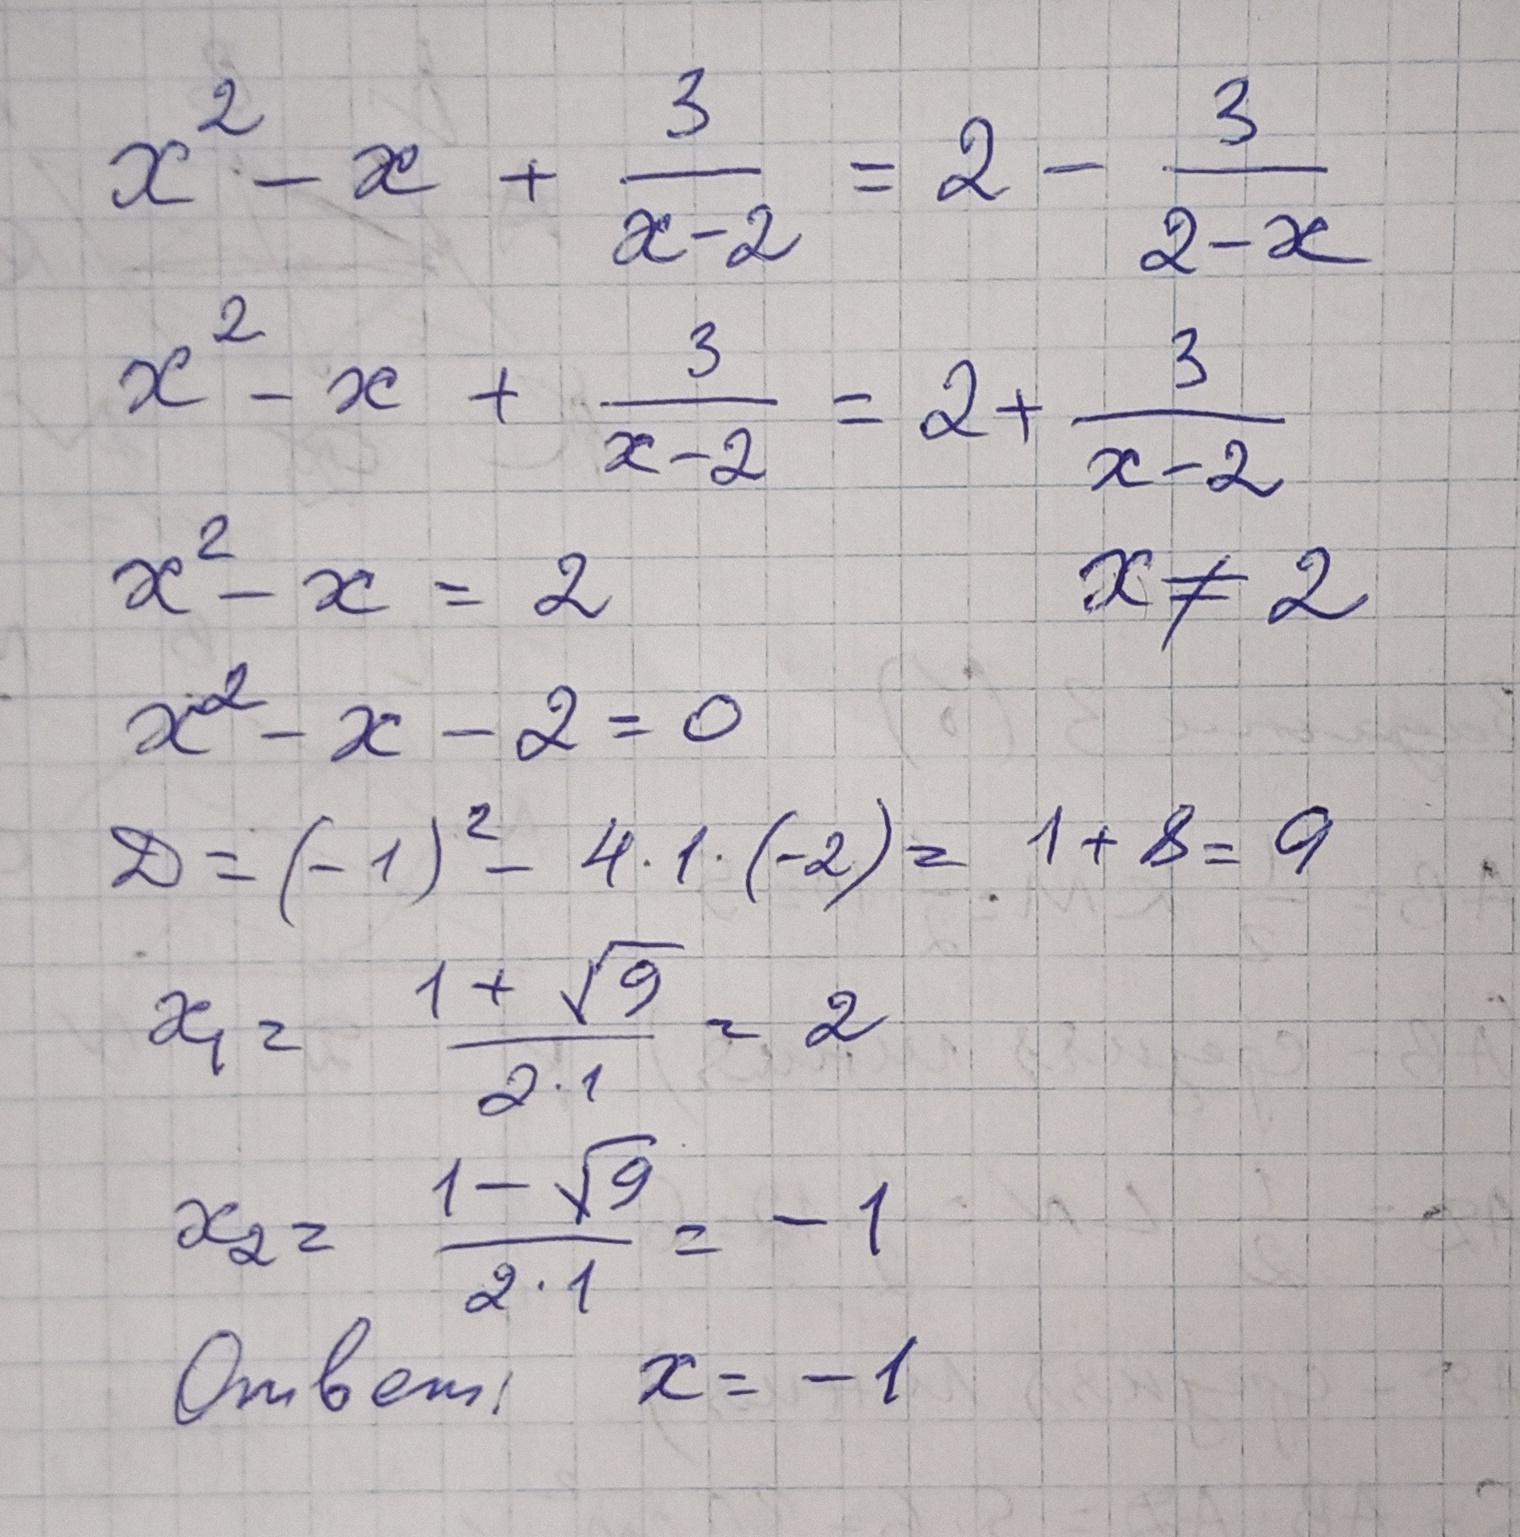 x² - x + 3/(x-2) = 2 - 3/(2-x)
x² - x + 3/(x-2) = 2 + 3/(x-2)
x² - x = 2    x ≠ 2
x² - x - 2 = 0
D = (-1)² - 4·1·(-2) = 1 + 8 = 9
x₁ = (1 + √9)/(2·1) = 2
x₂ = (1 - √9)/(2·1) = -1
Ответ: x = -1